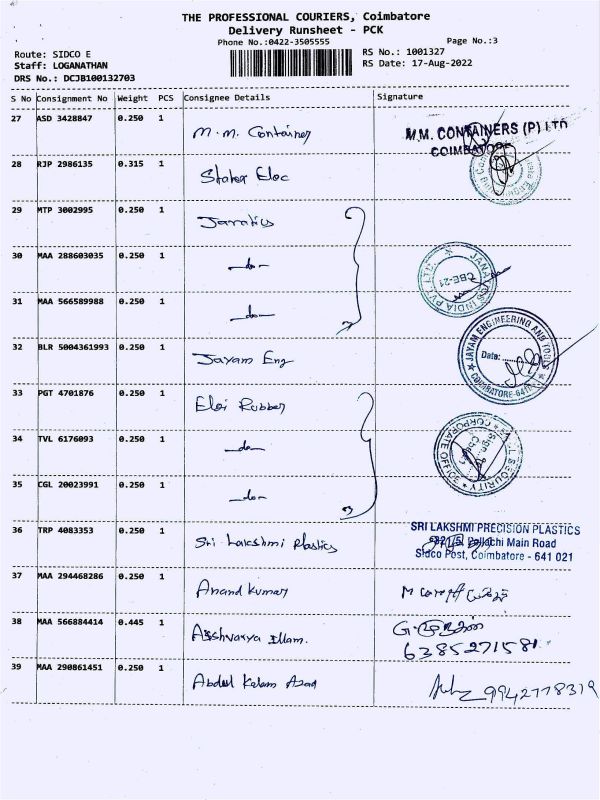 THE PROFESSIONAL COURIERS, Coimbatore
Delivery Runsheet - PCK
Phone No.:0422-3505555
Page No.:3
Route: SIDCO E
RS No.: 1001327
Staff: LOGANATHAN
RS Date: 17-Aug-2022
DRS No.: DCJB100132703
S No Consignment No Weight PCS Consignee Details Signature
27 ASD 3428847 0.250 1 M.M. Container
M.M. CONTAINERS (P) LTD
COIMBATORE
28 RJP 2986135 0.315 1
29 MTP 3002995 0.250 1
30 MAA 288603035 0.250 1 -do-
JANATICS INDIA PVT. LTD.
CBE-21
31 MAA 566589988 0.250 1 -do-
32 BLR 5004361993 0.250 1 Jayam Eng
JAYAM ENGINEERING AND
Date:
COIMBATORE-641
33 PGT 4701876 0.250 1 Rubber
34 TVL 6176093 0.250 1 -do-
SECURITY
CORPORATE OFFICE
35 CGL 20023991 0.250 1 -do-
36 TRP 4083353 0.250 1 Sri Lakshmi Plastics
SRI LAKSHMI PRECISION PLASTICS
Pollachi Main Road
Sidco Post, Coimbatore - 641 021
37 MAA 294468286 0.250 1 Anand Kumar
38 MAA 566884414 0.445 1 Aishvarya Illam.
6385271581
39 MAA 290861451 0.250 1 Abdul Kalam Azad
9942778319